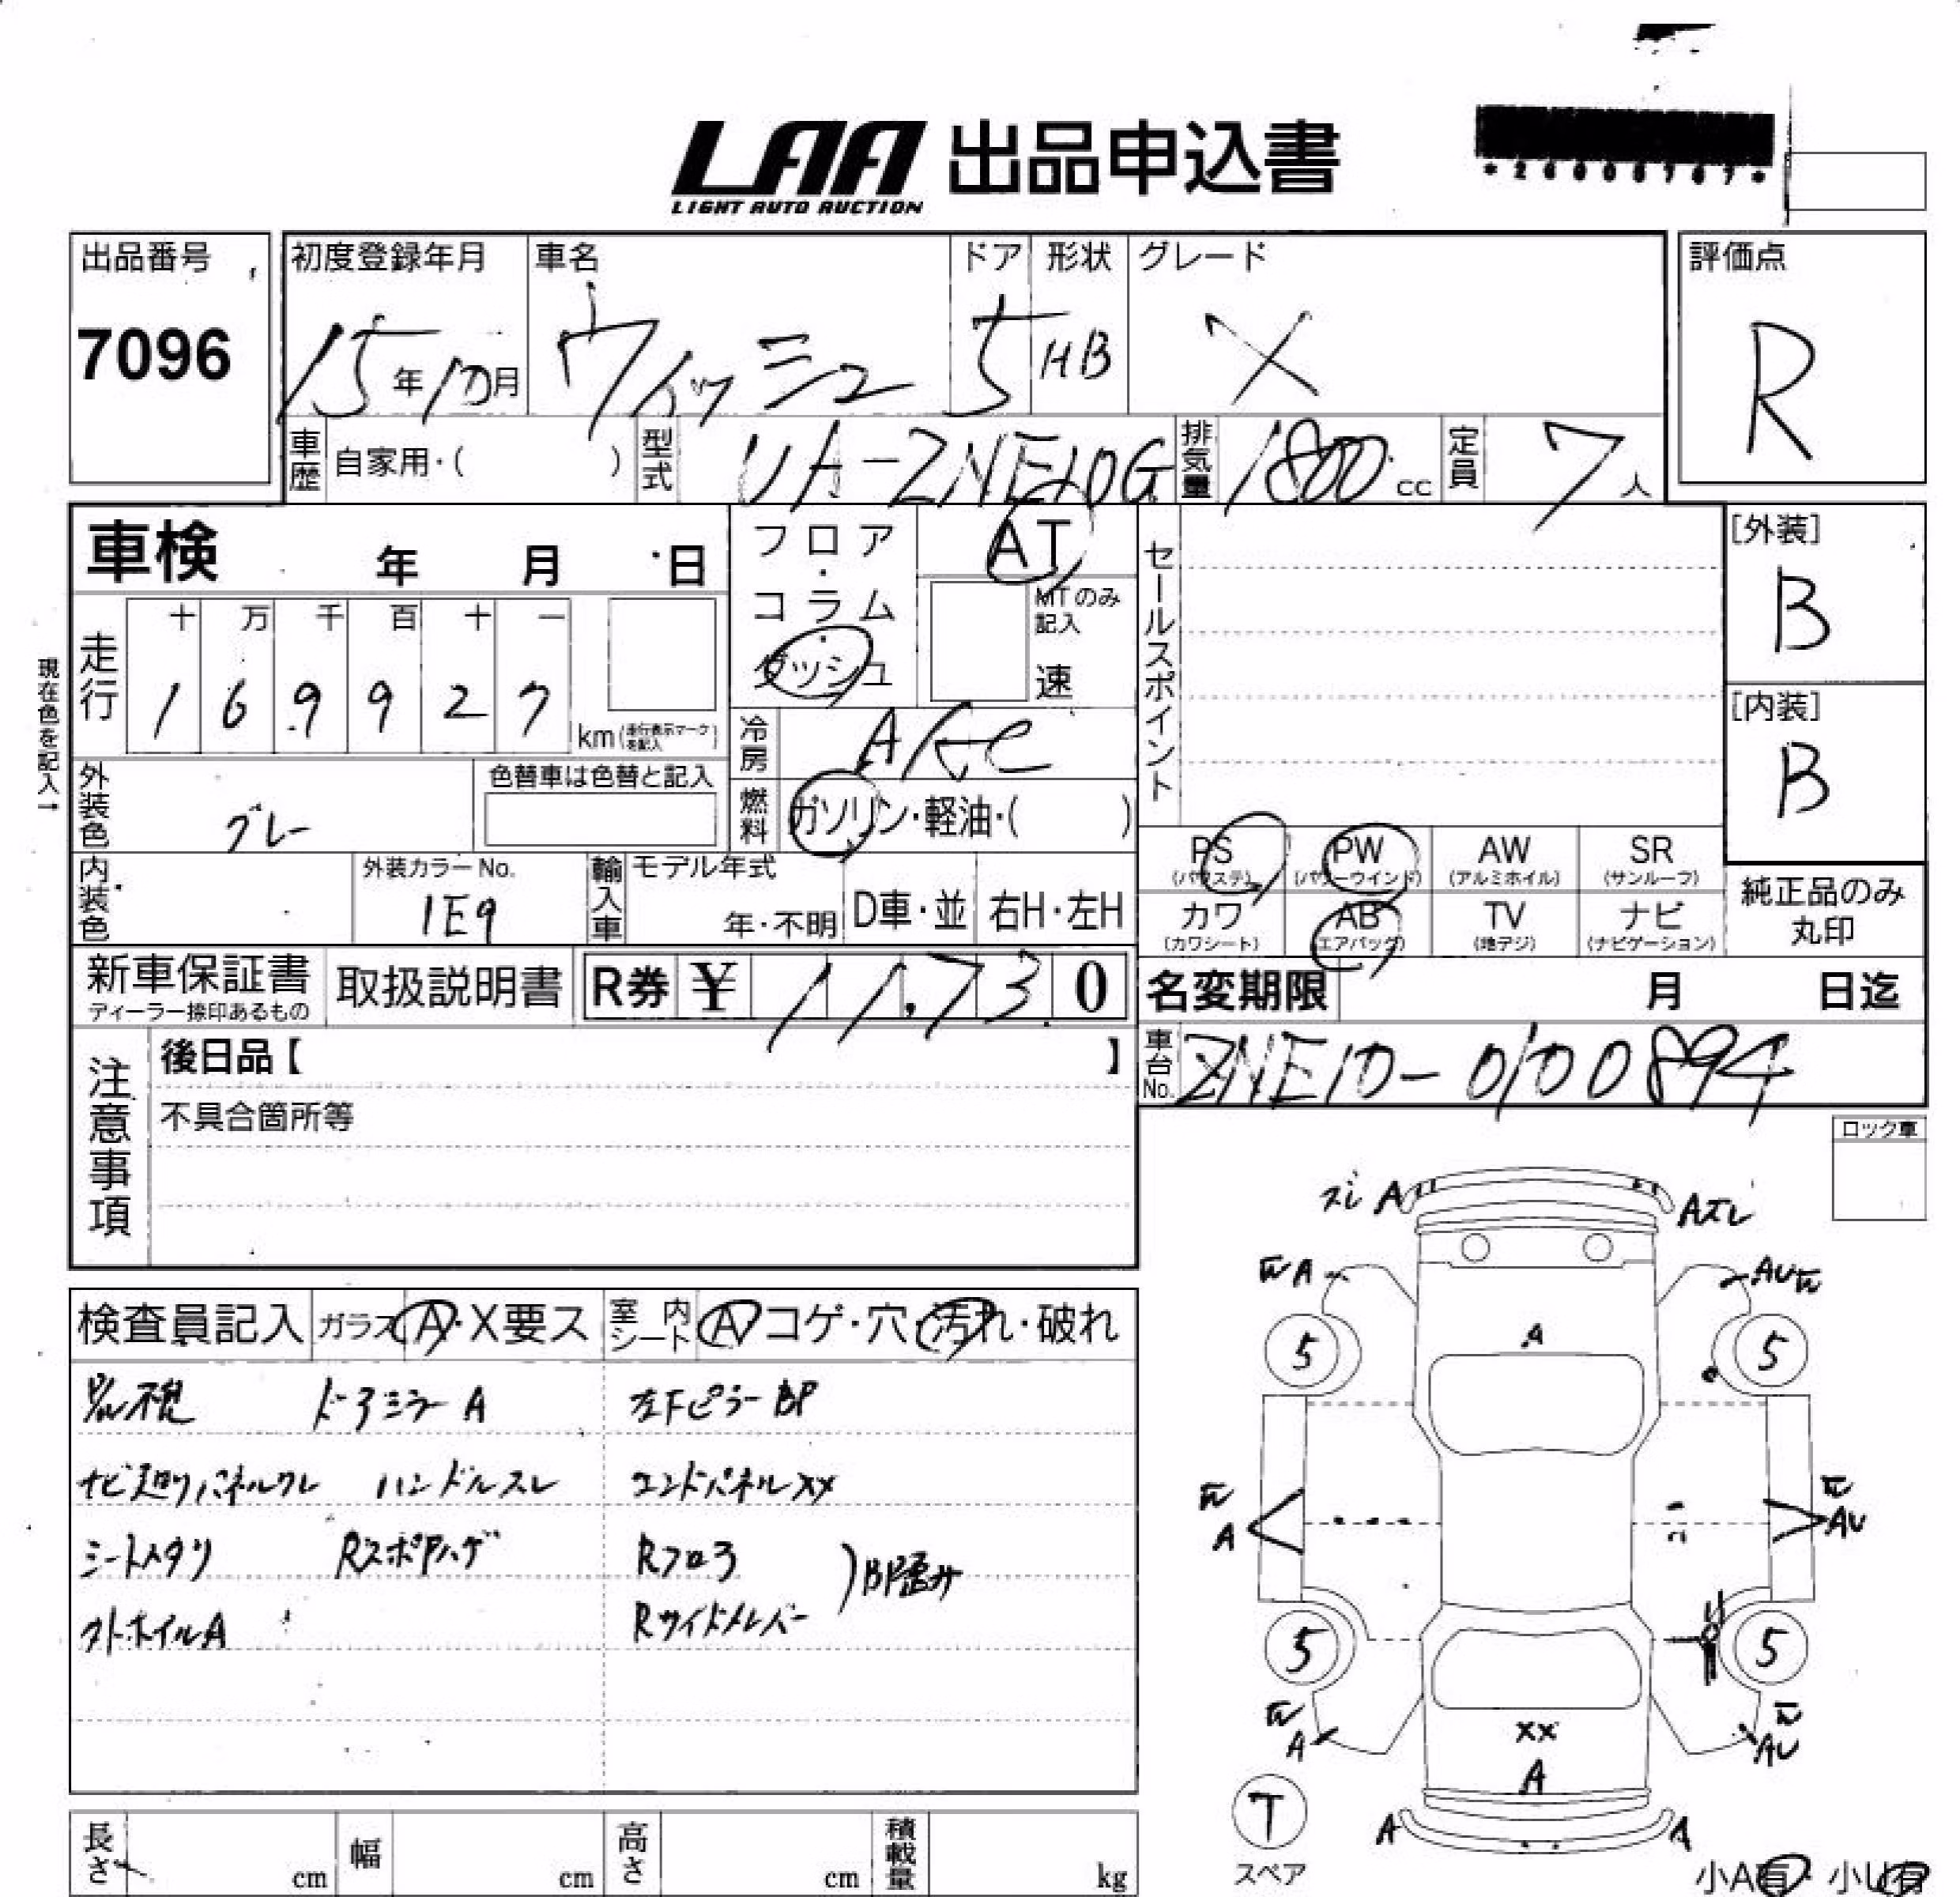 LAA 出品申込書
LIGHT AUTO AUCTION
出品番号
7096
初度登録年月 車名 ドア 形状 グレード
15年10月 ウィッシュ 5 HB X
評価点
R
車歴 自家用・( ) 型式 UA-ZNE10G 排気量 1800 cc 定員 7人
車検 年 月 日
フロア・コラム・ダッシュ
AT
MTのみ記入
速
セールスポイント
[外装]
B
[内装]
B
現在色を記入→
走行
十 万 千 百 十 一
1 6 9 9 2 7
km(走行表示マークを記入)
冷房 AAC
外装色 グレー
色替車は色替と記入
燃料 ガソリン・軽油・( )
PS PW AW SR
(パワステ) (パワーウインド) (アルミホイル) (サンルーフ)
カワ AB TV ナビ
(カワシート) (エアバッグ) (地デジ) (ナビゲーション)
純正品のみ
丸印
内装色
外装カラーNo.
1E9
輸入車 モデル年式
年・不明 D車・並 右H・左H
新車保証書
ディーラー捺印あるもの
取扱説明書
R券 ¥ 11,730
名変期限 月 日迄
車台No. ZNE10-0100894
注意事項
後日品【 】
不具合箇所等
ロック車
ズレ A
Aズレ
A
AU
A
5 5
A
AU
5 5
A
XX
AU
A
A A
検査員記入 ガラスA・X要ス 室内シート A コゲ・穴・汚れ・破れ
ドアミラーA 左Fピラー BP
ナビ廻りパネルワレ ハンドルスレ エンドパネルXX
シートヘタリ RスポアハゲRフロア
)BP歪み
フトホイルA Rサイドメンバー
T
スペア
長さ cm 幅 cm 高さ cm 積載量 kg
小A有・小U有